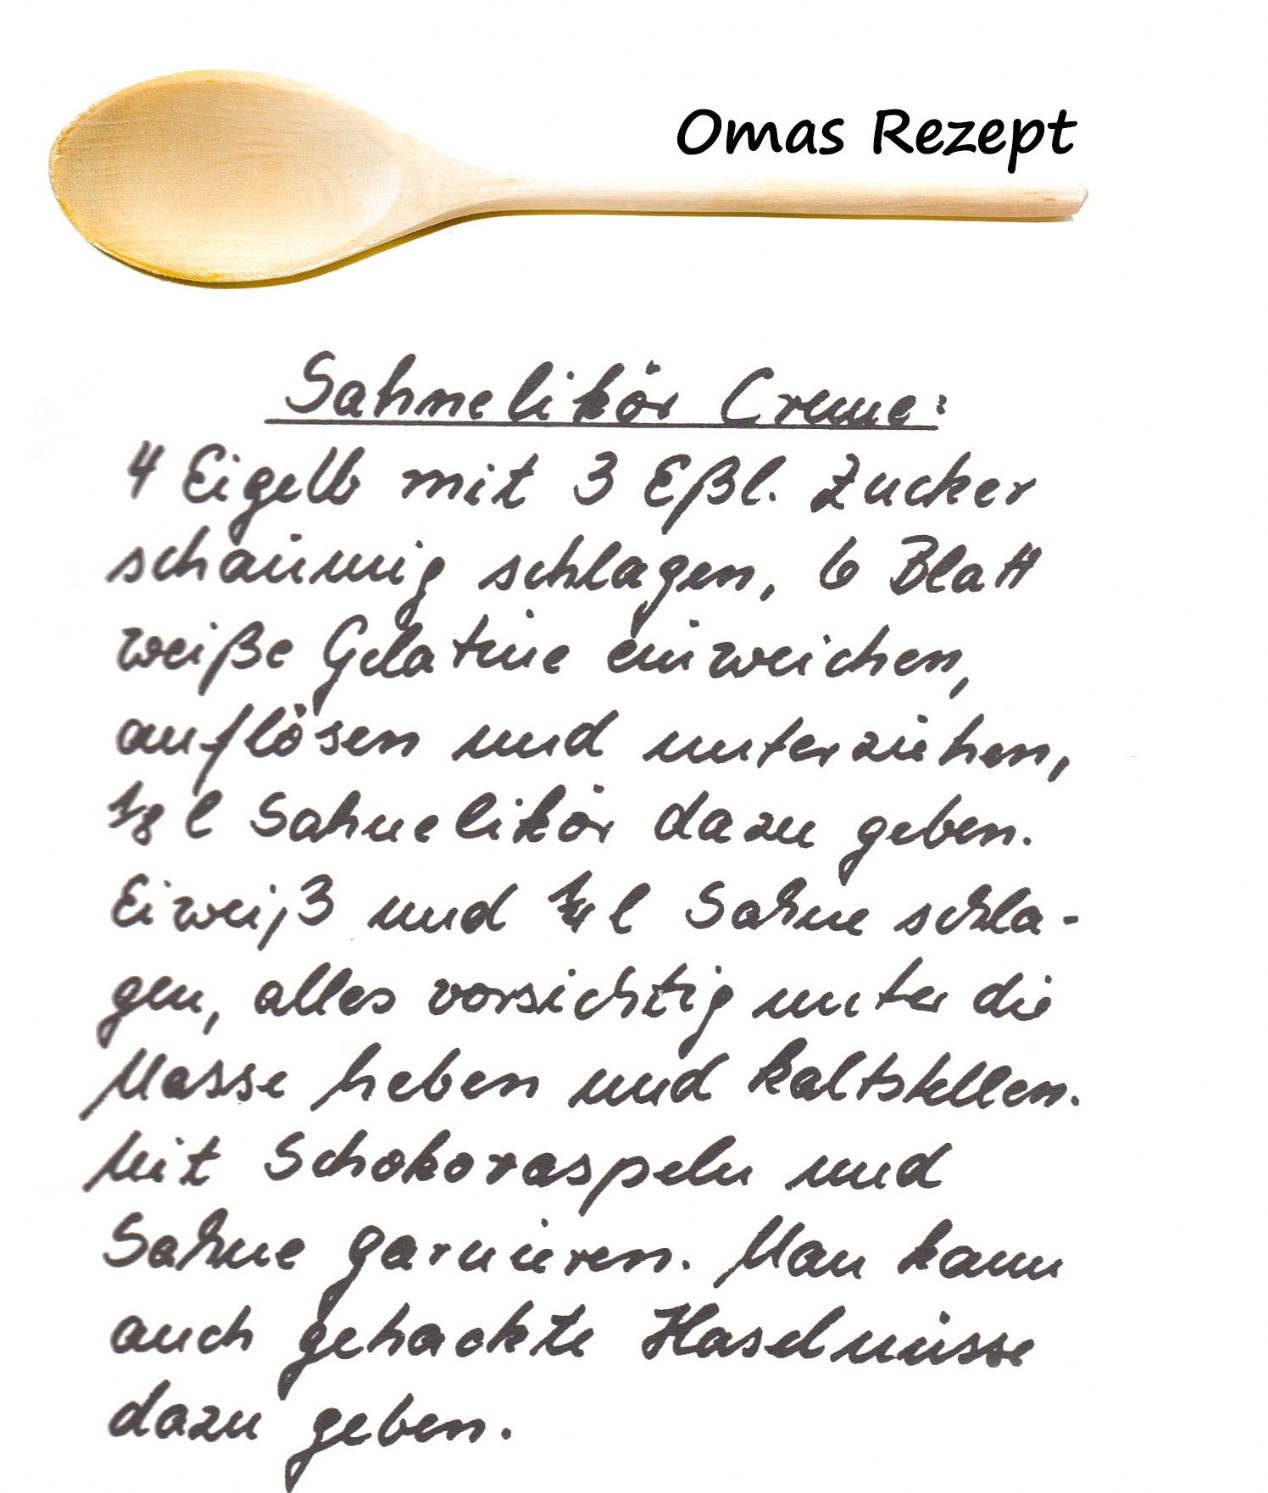 Omas Rezept
Sahnelikör Creme:
4 Eigelb mit 3 Eßl. Zucker
schaumig schlagen, 6 Blatt
weiße Gelatine einweichen,
auflösen und unterziehen,
1/8 l Sahnelikör dazu geben.
Eiweiß und 1/4 l Sahne schla-
gen, alles vorsichtig unter die
Masse heben und kaltstellen.
Mit Schokoraspeln und
Sahne garnieren. Man kann
auch gehackte Haselnüsse
dazu geben.